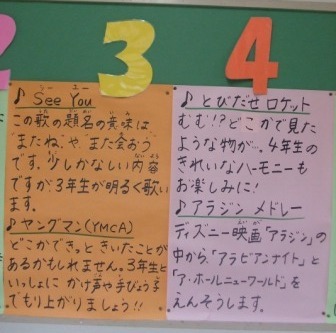 2
3
4
♪ See You
シー ユー
この歌の題名の意味は
"またね"や"また会おう"
です。少しかなしい内容
ですが3年生が明るく歌い
ます。
♪ヤングマン(YMCA)
どこかできっときいたことが
あるかもしれません。3年生と
いっしょに かけ声や手びょう子
でもり上がりましょう!!
♪とびだせ ロケット
むむ!?どこかで見た
ような物が…。4年生の
きれいなハーモニーも
お楽しみに!
♪アラジン メドレー
ディズニー映画「アラジン」の
中から、「アラビアンナイト」と
「ア・ホールニューワールド」を
えんそうします。